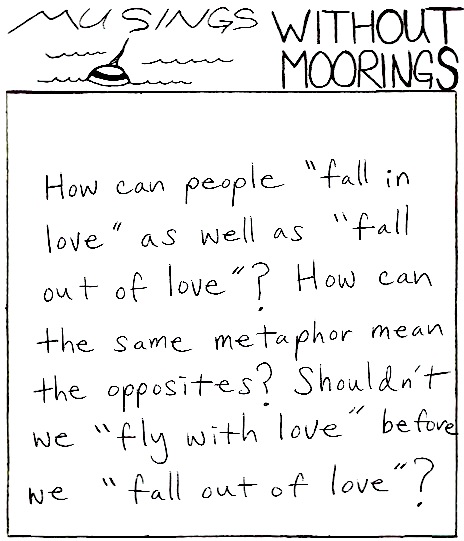 MUSINGS WITHOUT
MOORINGS
How can people "fall in
love" as well as "fall
out of love"? How can
the same metaphor mean
the opposites? Shouldn't
we "fly with love" before
we "fall out of love"?